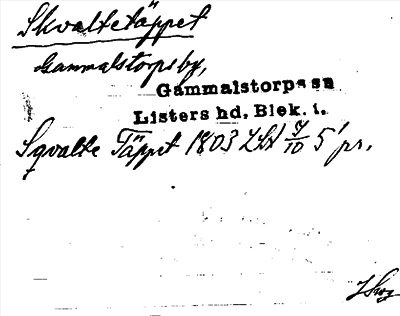 Skvaltetäppet
Gammalstorps by,
Gammalstorps sn
Listers hd. Blek. l.
Sqvalte Täppet 1803 LSA 7/10 5' pr.